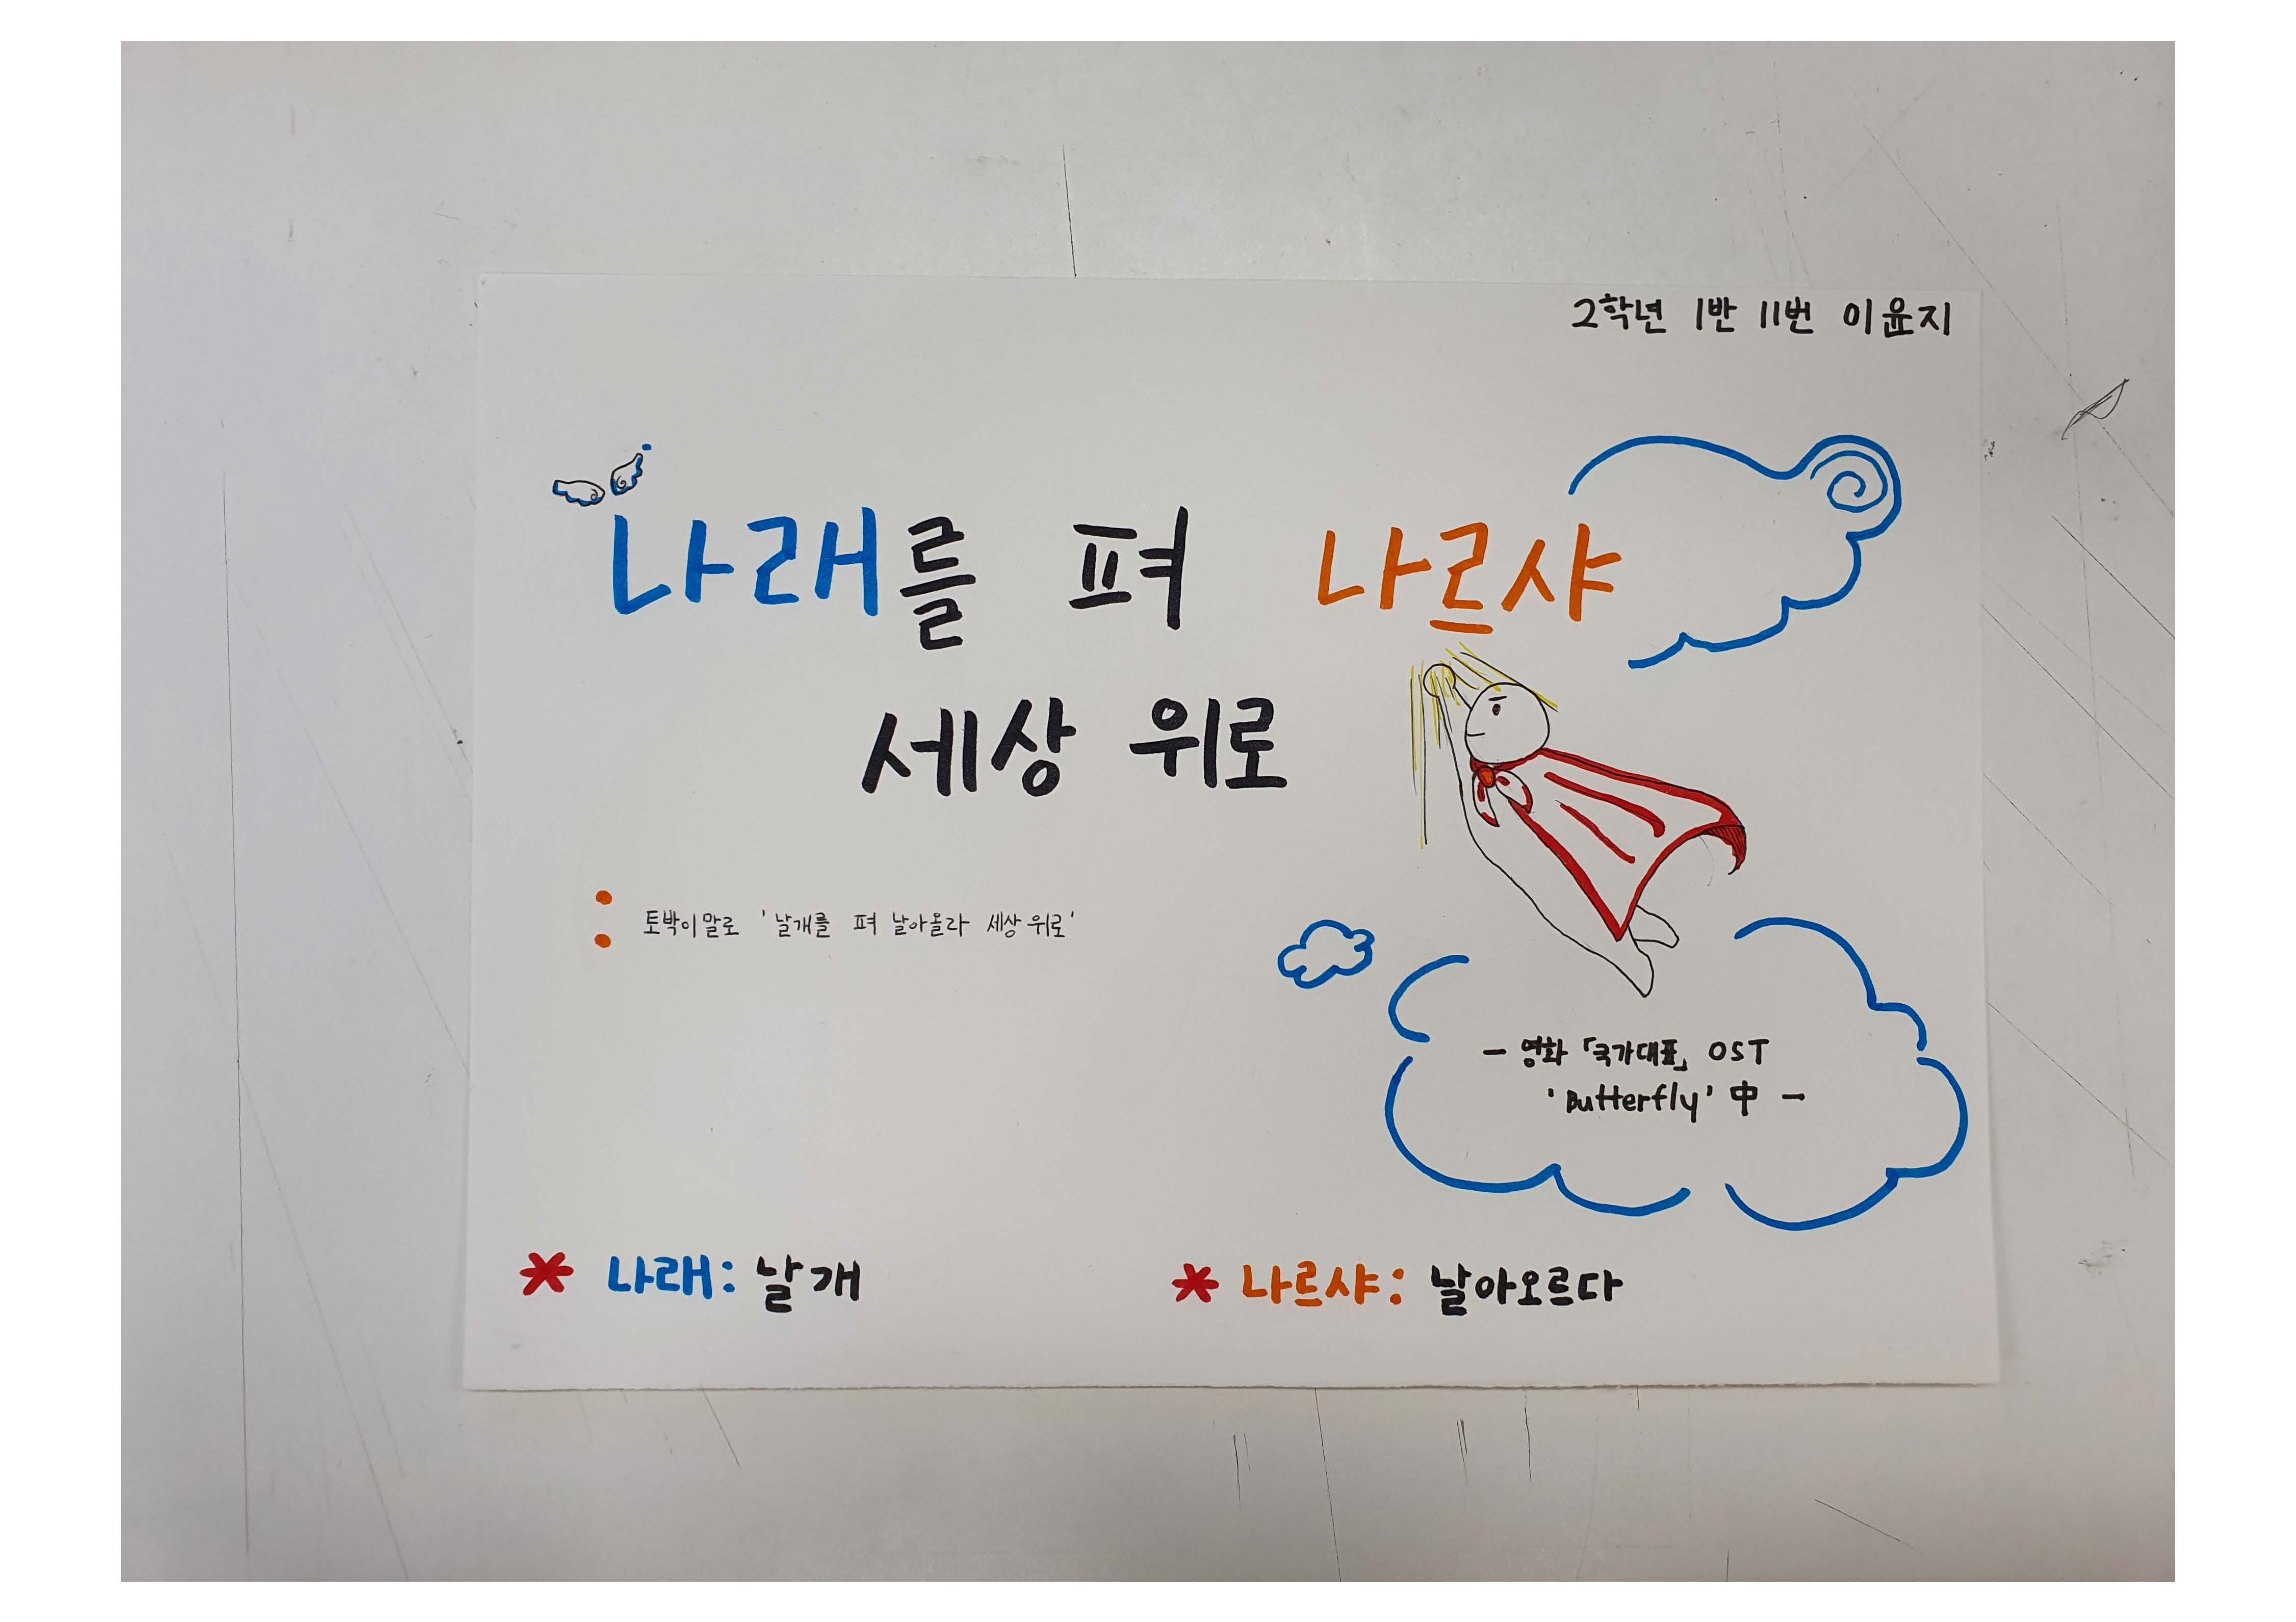 2학년 1반 11번 이윤지
나래를 펴 나르샤
세상 위로
: 토박이말로 '날개를 펴 날아올라 세상 위로'
- 영화 「국가대표」 OST
'Butterfly' 中 -
* 나래: 날개
* 나르샤: 날아오르다